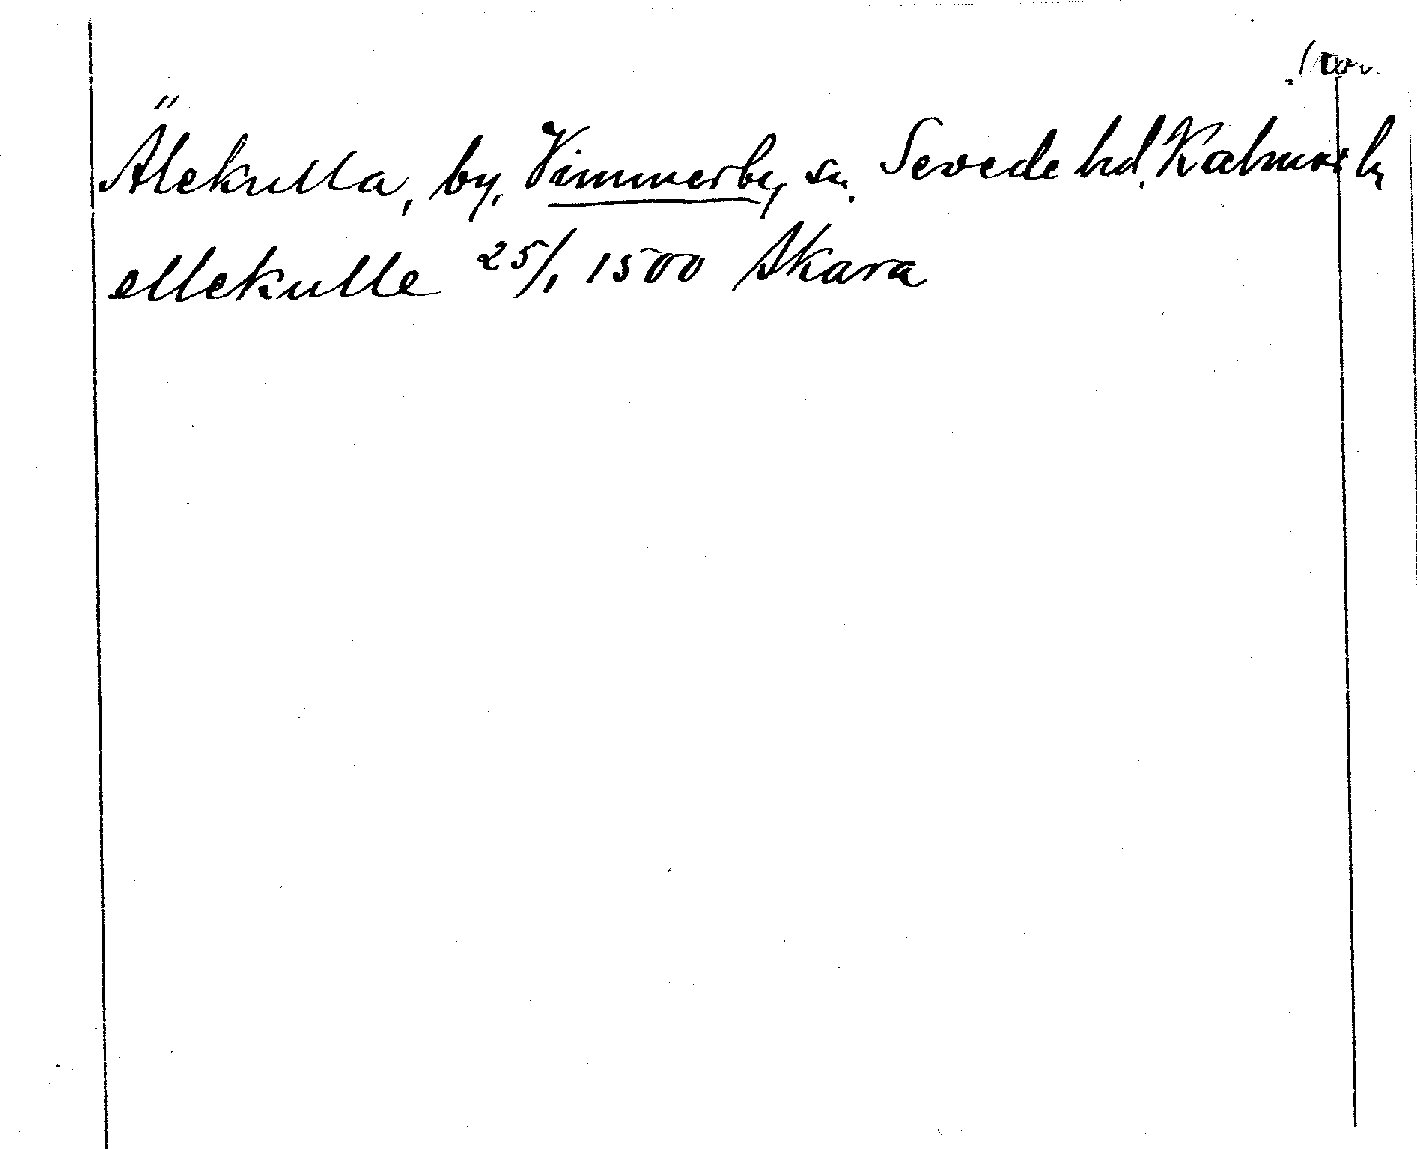 Älekulla, by, Vimmerby sn. Sevede hd. Kalmar l
ellekulle 25/1 1500 Skara